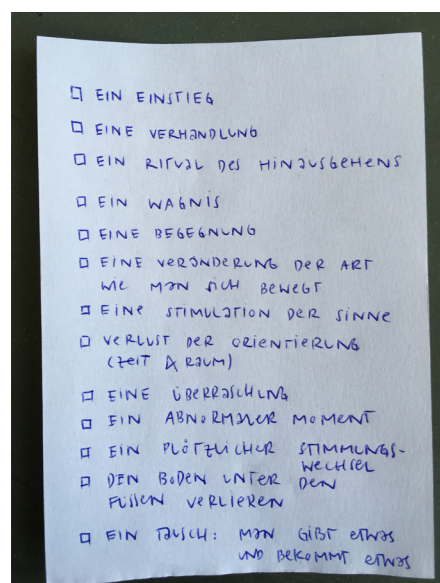 ☐ EIN EINSTIEG
☐ EINE VERHANDLUNG
☐ EIN RITUAL DES HINAUSGEHENS
☐ EIN WAGNIS
☐ EINE BEGEGNUNG
☐ EINE VERÄNDERUNG DER ART
WIE MAN SICH BEWEGT
☐ EINE STIMULATION DER SINNE
☐ VERLUST DER ORIENTIERUNG
(ZEIT & RAUM)
☐ EINE ÜBERRASCHUNG
☐ EIN ABNORMALER MOMENT
☐ EIN PLÖTZLICHER STIMMUNGS-
WECHSEL
☐ DEN BODEN UNTER DEN
FÜSSEN VERLIEREN
☐ EIN TAUSCH: MAN GIBT ETWAS
UND BEKOMMT ETWAS